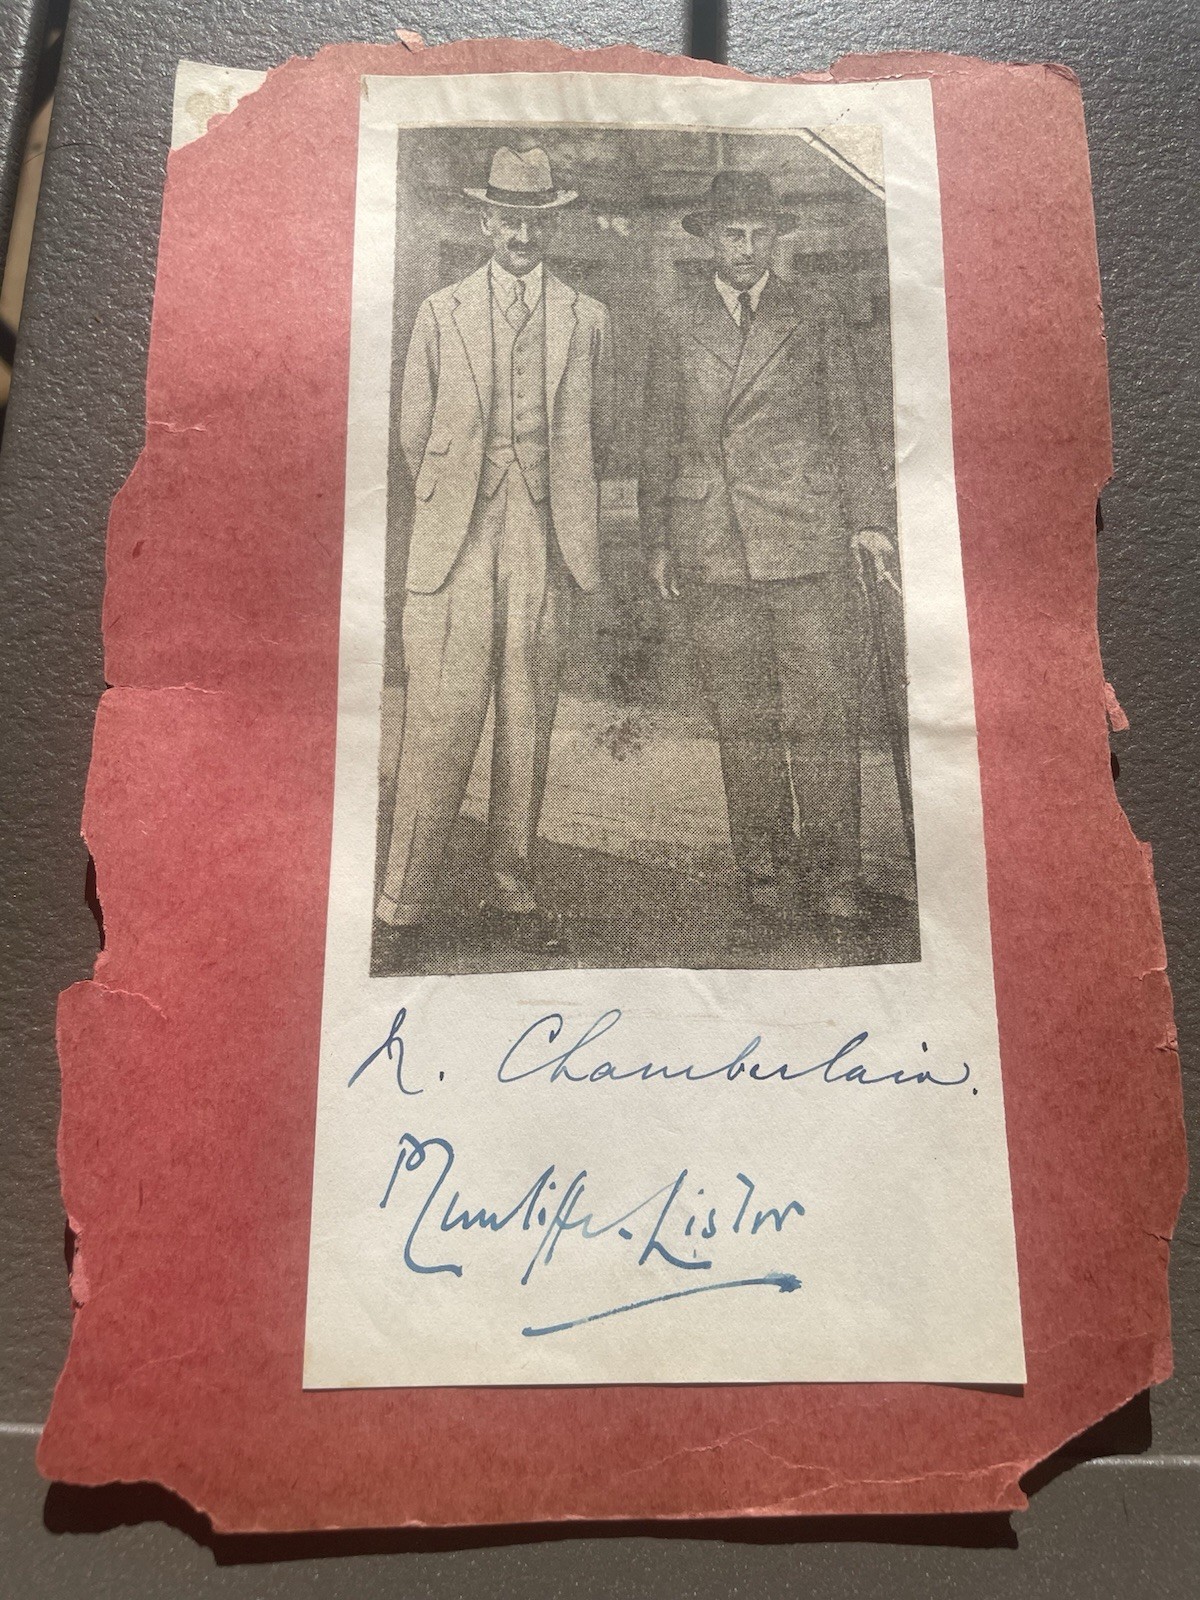 N. Chamberlain.
P Cunliffe-Lister